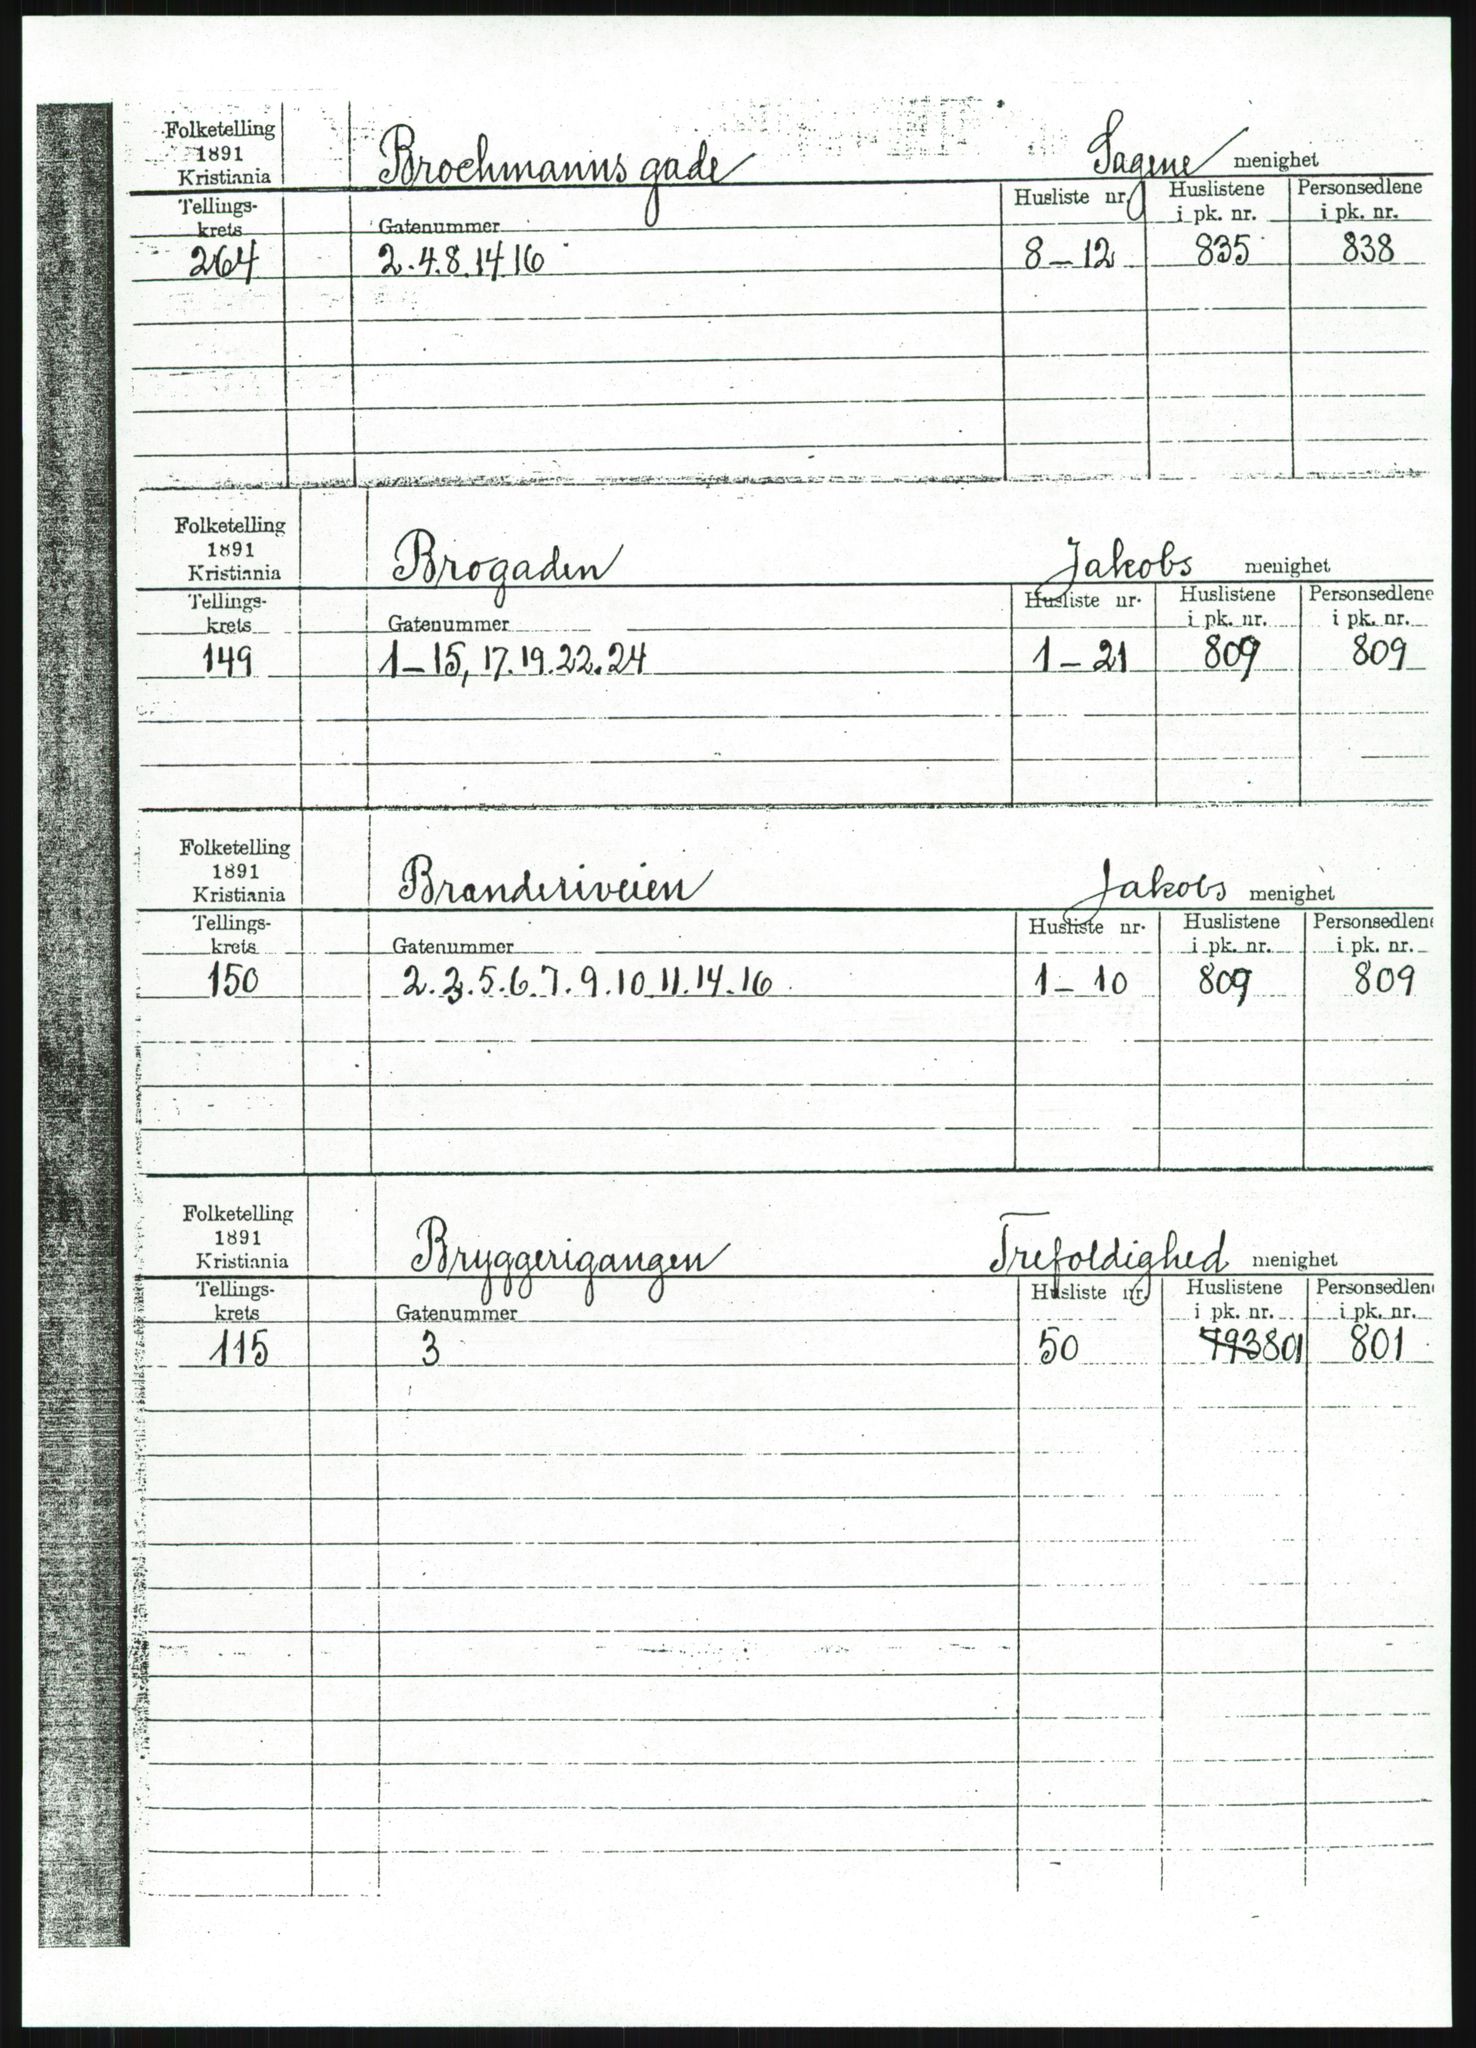 Folketelling
1891
Kristiania
Brochmanns gade
Sagene menighet
Tellings-
krets
Gatenummer
Husliste nr.
Huslistene
i pk. nr.
Personsedlene
i pk. nr.
264 2.4.8.14.16 8-12 835 838
Folketelling
1891
Kristiania
Brogaden
Jakobs menighet
Tellings-
krets
Gatenummer
Husliste nr.
Huslistene
i pk. nr.
Personsedlene
i pk. nr.
149 1-15, 17.19.22.24 1-21 809 809
Folketelling
1891
Kristiania
Branderiveien
Jakobs menighet
Tellings-
krets
Gatenummer
Husliste nr.
Huslistene
i pk. nr.
Personsedlene
i pk. nr.
150 2.3.5.6.7.9.10.11.14.16 1-10 809 809
Folketelling
1891
Kristiania
Bryggerigangen
Trefoldighed menighet
Tellings-
krets
Gatenummer
Husliste nr.
Huslistene
i pk. nr.
Personsedlene
i pk. nr.
115 3 50 793 801 801